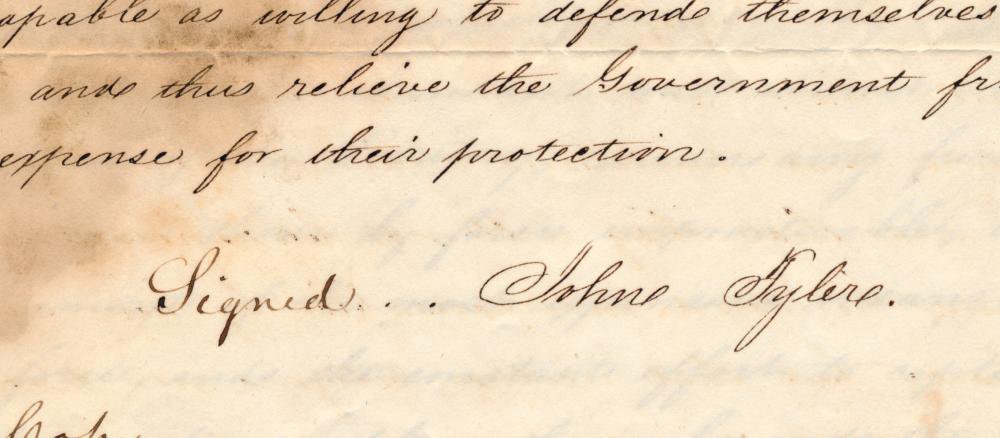 capable as willing to defend themselves
and thus relieve the Government
expense for their protection.
Signed... John Tyler.